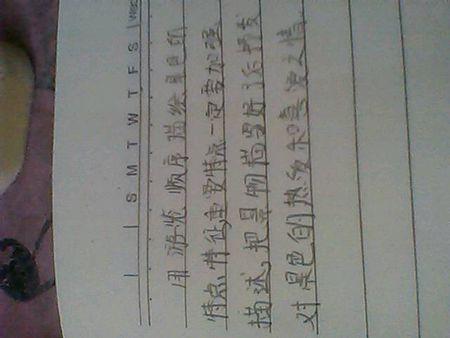 S M T W T F S
用游览顺序描绘景色的
特点,特征重要特点一定要加强
描述,把景物描写好后抒发
对景色的热爱和之情